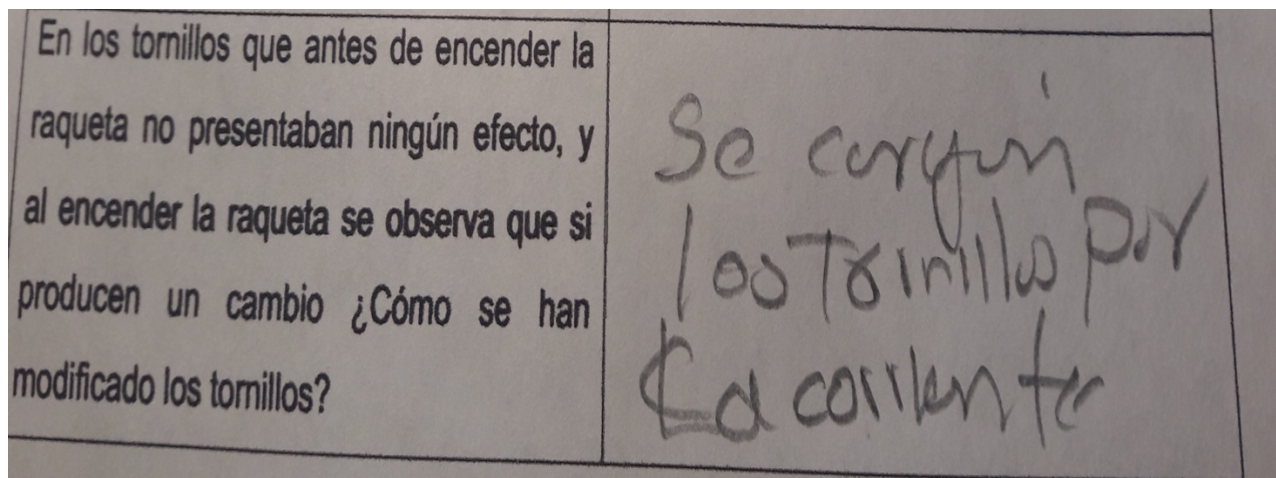 En los tornillos que antes de encender la
raqueta no presentaban ningún efecto, y
al encender la raqueta se observa que si
producen un cambio ¿Cómo se han
modificado los tornillos?
Se cargan
los Tornillos por
La corriente